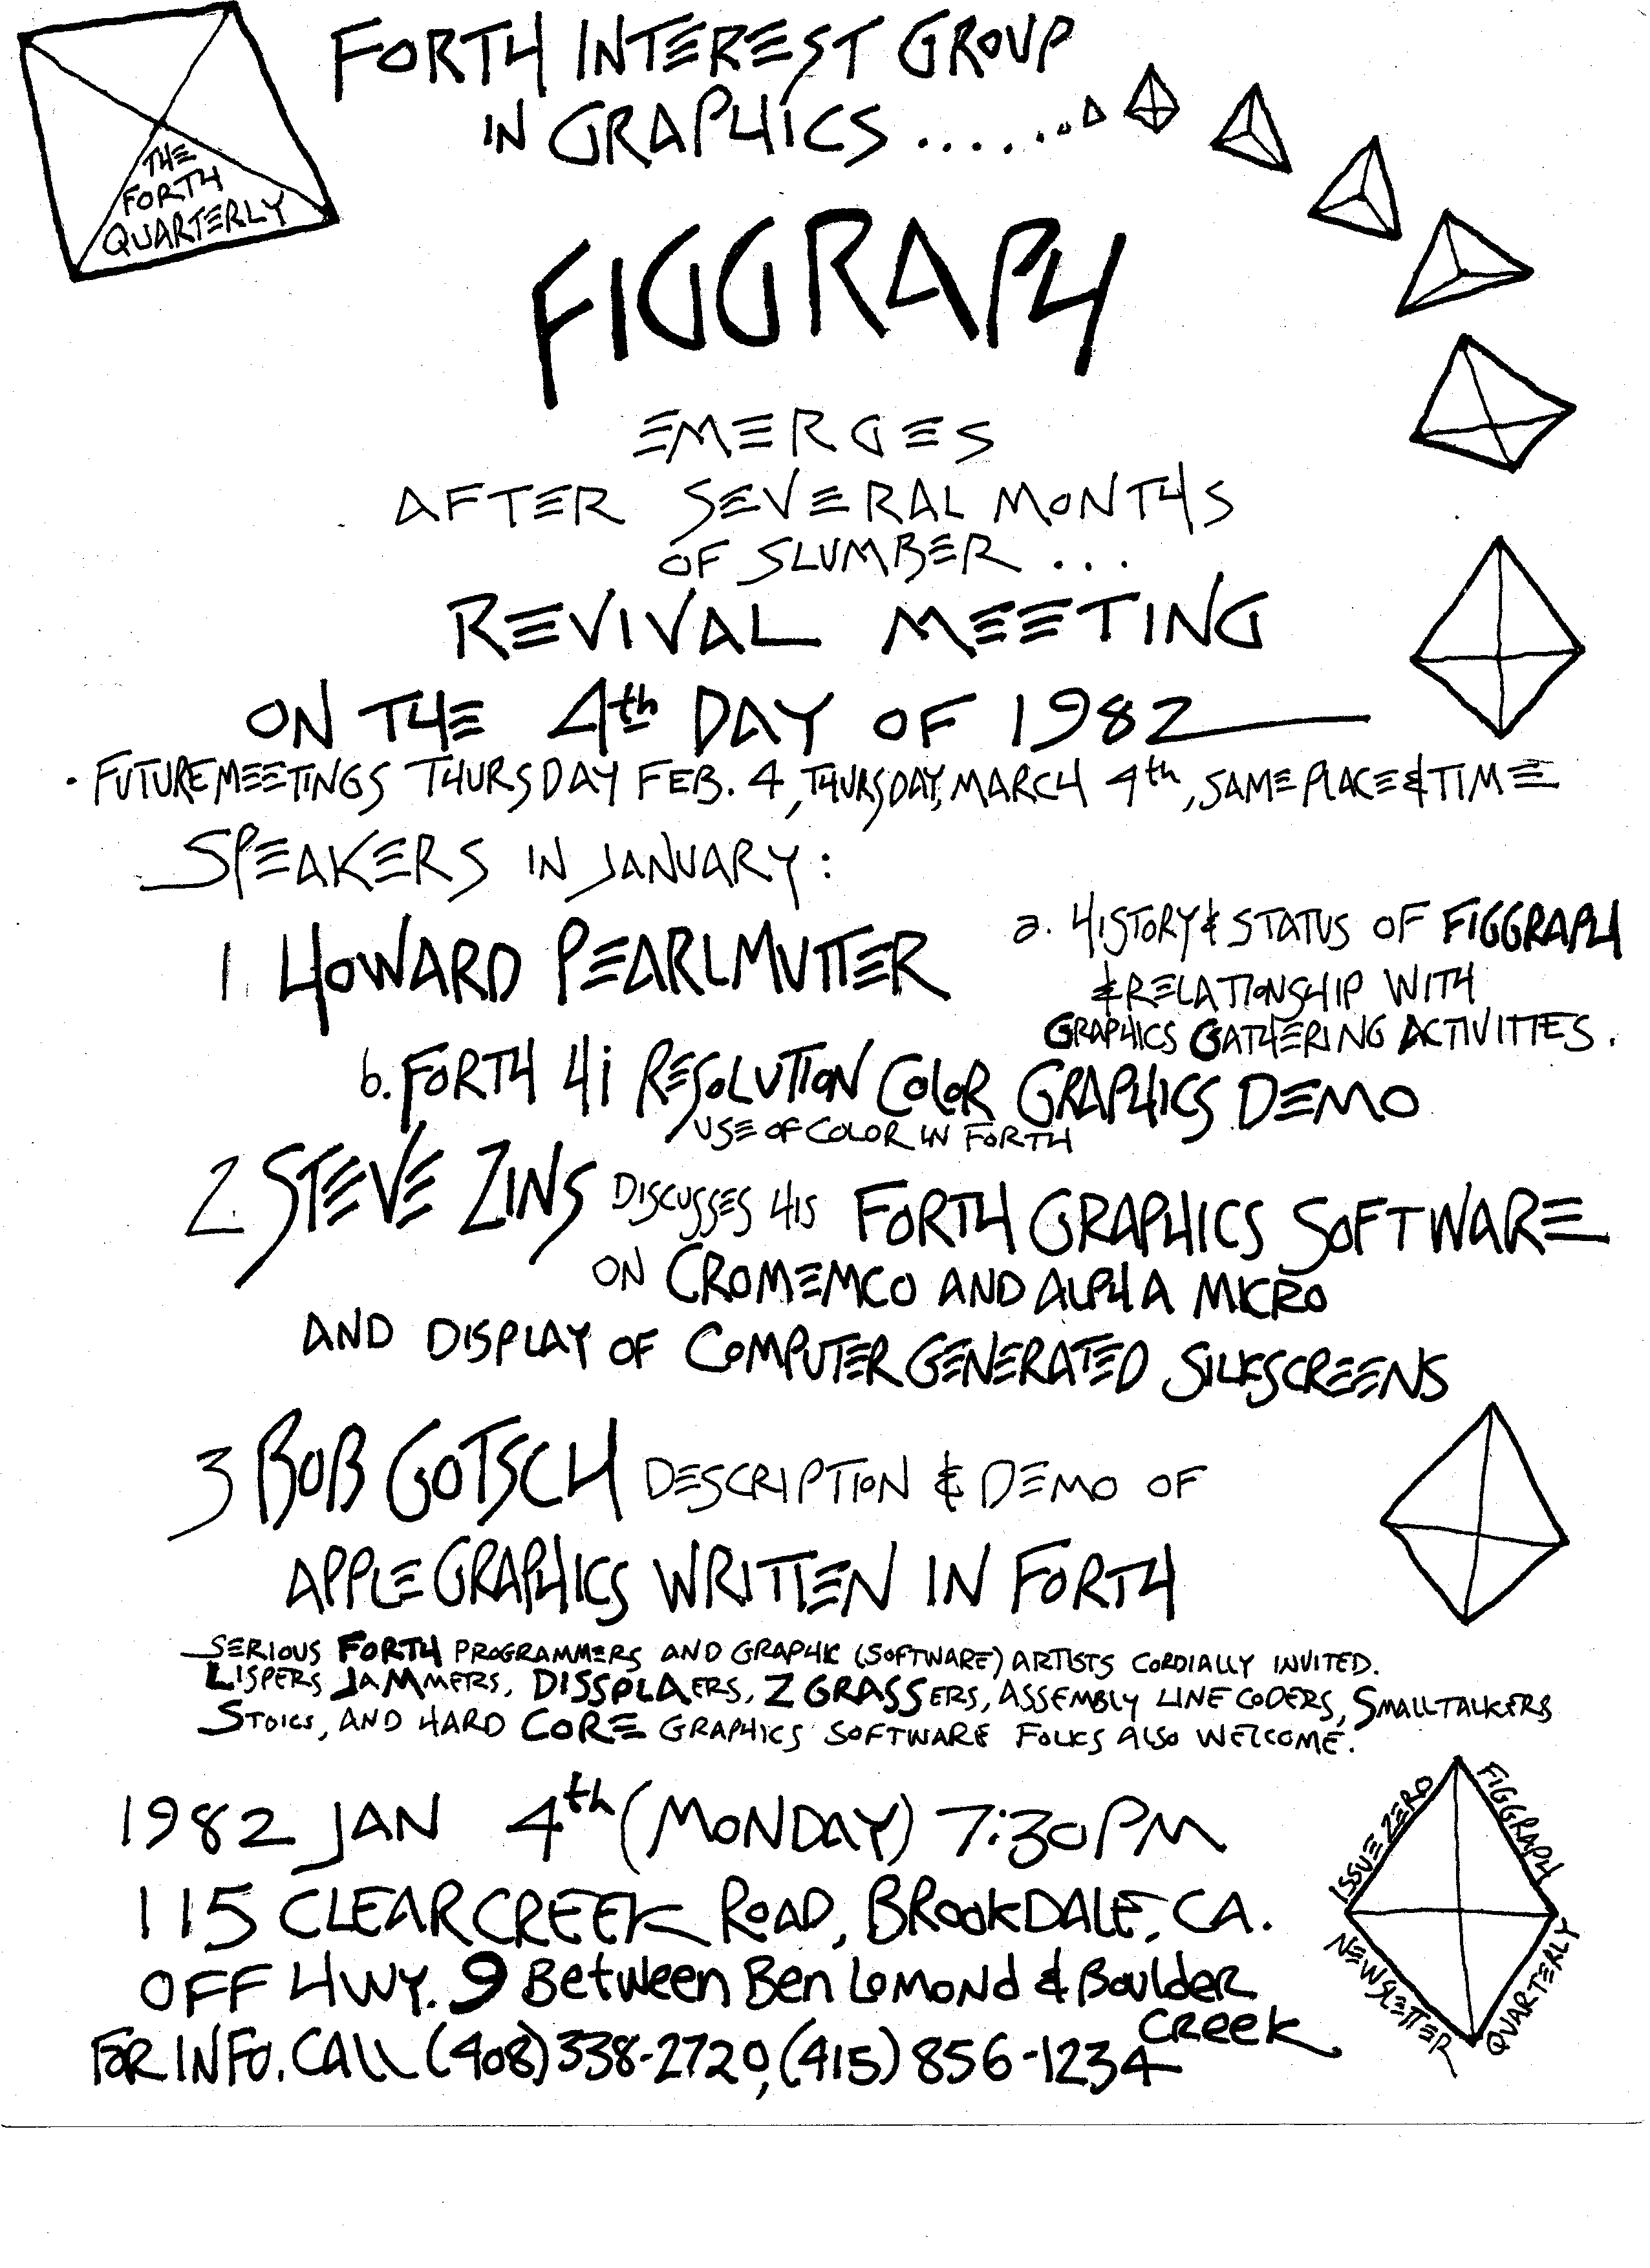 THE
FORTH
QUARTERLY
FORTH INTEREST GROUP
IN GRAPHICS.......
FIGGRAPH
EMERGES
AFTER SEVERAL MONTHS
OF SLUMBER ...
REVIVAL MEETING
ON THE 4th DAY OF 1982
• FUTURE MEETINGS THURSDAY FEB. 4, THURSDAY, MARCH 4th, SAME PLACE & TIME
SPEAKERS IN JANUARY:
1. HOWARD PEARLMUTTER
a. HISTORY & STATUS OF FIGGRAPH
& RELATIONSHIP WITH
GRAPHICS GATHERING ACTIVITIES.
b. FORTH Hi RESOLUTION COLOR GRAPHICS DEMO
USE OF COLOR IN FORTH
2. STEVE ZINS DISCUSSES HIS FORTH GRAPHICS SOFTWARE
ON CROMEMCO AND ALPHA MICRO
AND DISPLAY OF COMPUTER GENERATED SILKSCREENS
3 BOB GOTSCH DESCRIPTION & DEMO OF
APPLE GRAPHICS WRITTEN IN FORTH
SERIOUS FORTH PROGRAMMERS AND GRAPHIC (SOFTWARE) ARTISTS CORDIALLY INVITED.
LISPERS JAMMERS, DISSPLAERS, ZGRASSERS, ASSEMBLY LINE CODERS, SMALLTALKERS
STOICS, AND HARD CORE GRAPHICS SOFTWARE FOLKS ALSO WELCOME.
1982 JAN 4th (MONDAY) 7:30 PM
115 CLEAR CREEK ROAD, BROOKDALE, CA.
OFF HWY. 9 Between Ben Lomond & Boulder
Creek
FOR INFO. CALL (408) 338-2720, (415) 856-1234
ISSUE ZERO
FIGGRAPH
NEWSLETTER
QUARTERLY